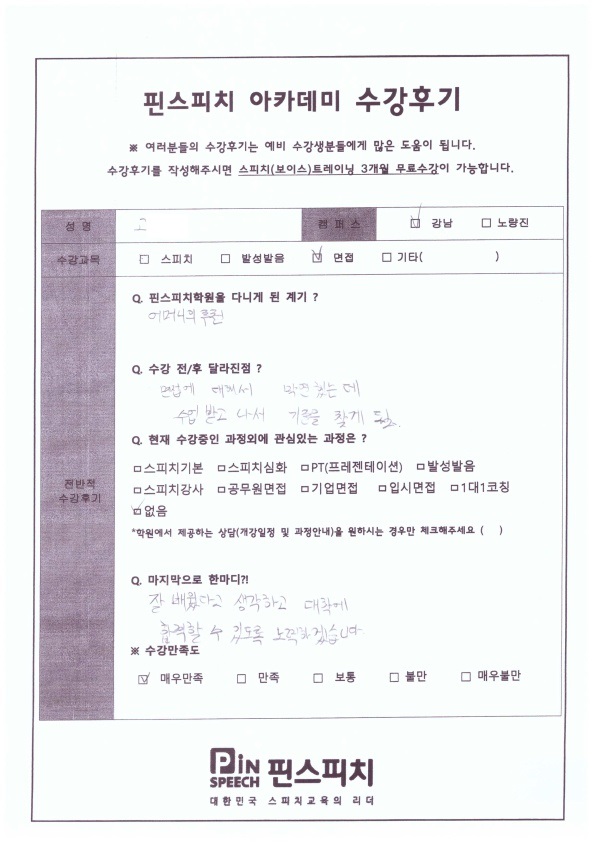 핀스피치 아카데미 수강후기
※ 여러분들의 수강후기는 예비 수강생분들에게 많은 도움이 됩니다.
수강후기를 작성해주시면 스피치(보이스)트레이닝 3개월 무료수강이 가능합니다.
성 명 고 캠 퍼 스 ☑ 강남 □ 노량진
수강과목 □ 스피치 □ 발성발음 ☑ 면접 □ 기타( )
Q. 핀스피치학원을 다니게 된 계기 ?
어머니의 추천
Q. 수강 전/후 달라진점 ?
면접에 대해서 막연했는데
수업 받고 나서 기준을 찾게 됨.
Q. 현재 수강중인 과정외에 관심있는 과정은 ?
□스피치기본 □스피치심화 □PT(프레젠테이션) □발성발음
□스피치강사 □공무원면접 □기업면접 □입시면접 □1대1코칭
☑없음
*학원에서 제공하는 상담(개강일정 및 과정안내)을 원하시는 경우만 체크해주세요 ( )
전반적
수강후기
Q. 마지막으로 한마디?!
잘 배웠다고 생각하고 대학에
합격할 수 있도록 노력하겠습니다
※ 수강만족도
☑ 매우만족 □ 만족 □ 보통 □ 불만 □ 매우불만
PiN
SPEECH 핀스피치
대한민국 스피치교육의 리더